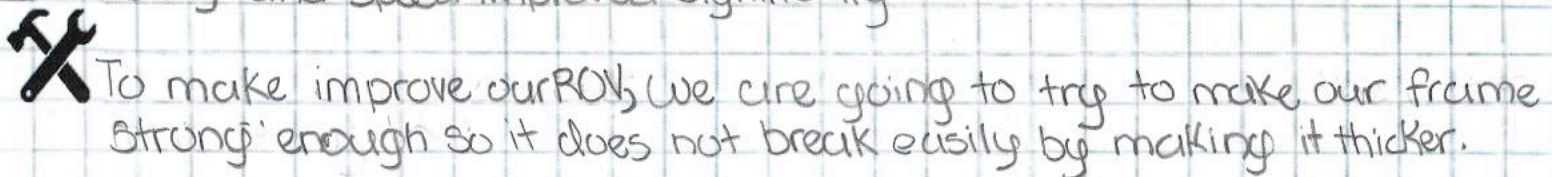 To make improve our ROV, we are going to try to make our frame
strong enough so it does not break easily by making it thicker.